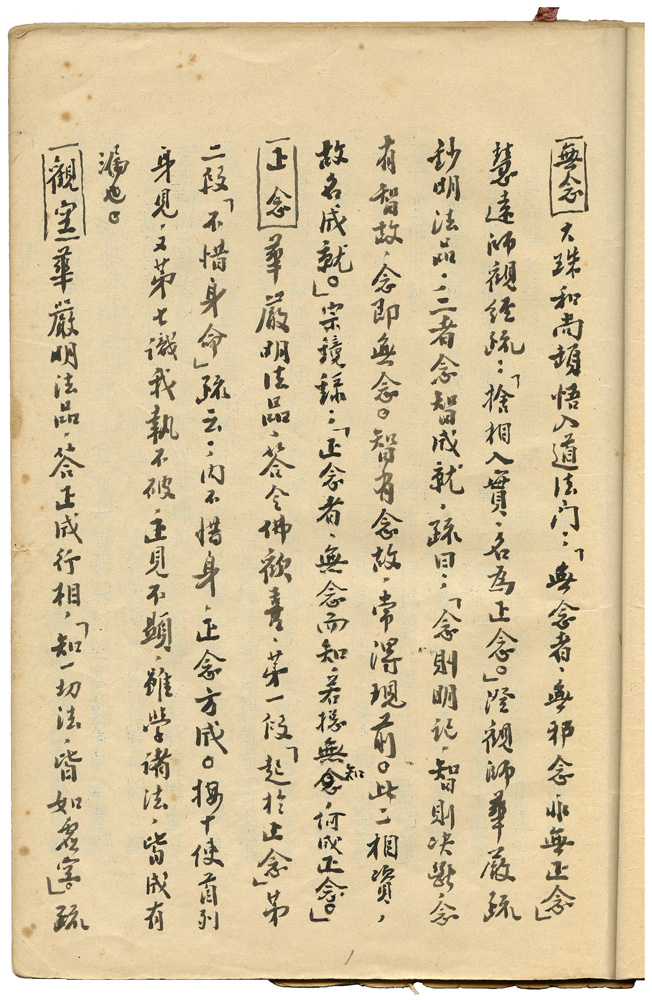 無念 大珠和尚頓悟入道法门：「無念者、無邪念非無正念」
慧遠師觀經疏：「捨相入實、名為正念。」澄觀師華嚴疏
鈔明法品、三者念智成就、疏曰：「念則明記、智則决斷、念
有智故、念即無念。智有念故、常得現前。此二相資，
故名成就。」宗鏡錄：「正念者、無念而知、若總無念知、何成正念。」
正念 華嚴明法品、答令佛歡喜、第一段「起於正念」第
二段「不惜身命」疏云：内不惜身、正念方成。按十使首列
身見、又第七識我執不破、正見不顯、雖學諸法、皆成有
漏也。
觀空 華嚴明法品、答正成行相、「知一切法、皆如虛空。」疏
1